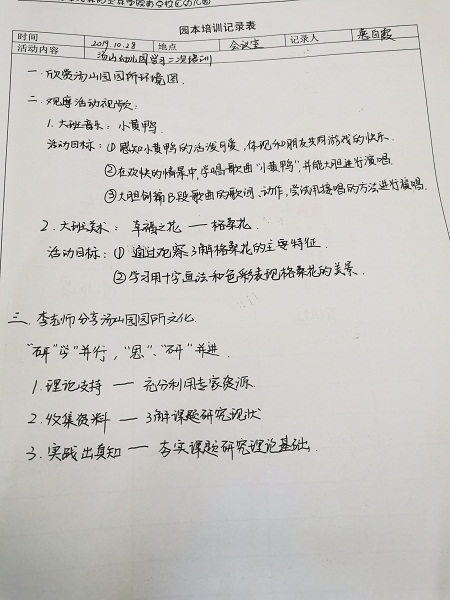 园本培训记录表
时间 2019.10.28 地点 会议室 记录人
活动内容 汤山幼儿园学习二次培训
一. 欣赏汤山园园所环境图.
二. 观摩活动视频:
1. 大班音乐: 小黄鸭.
活动目标: ①感知小黄鸭的活泼可爱, 体现和朋友共同游戏的快乐.
②在欢快的情景中, 学唱歌曲"小黄鸭", 并能大胆进行演唱.
③大胆创编B段歌曲的歌词、动作, 尝试用接唱的方法进行演唱.
2. 大班美术: 幸福之花 — 格桑花.
活动目标: ① 通过观察了解格桑花的主要特征.
②学习用十字画法和色彩表现格桑花的美景.
三. 李老师分享汤山园园所文化.
"研""学"并行, "思"、"研"并进.
1. 理论支持 — 充分利用专家资源.
2. 收集资料 — 了解课题研究现状
3. 实践出真知 — 夯实课题研究理论基础.